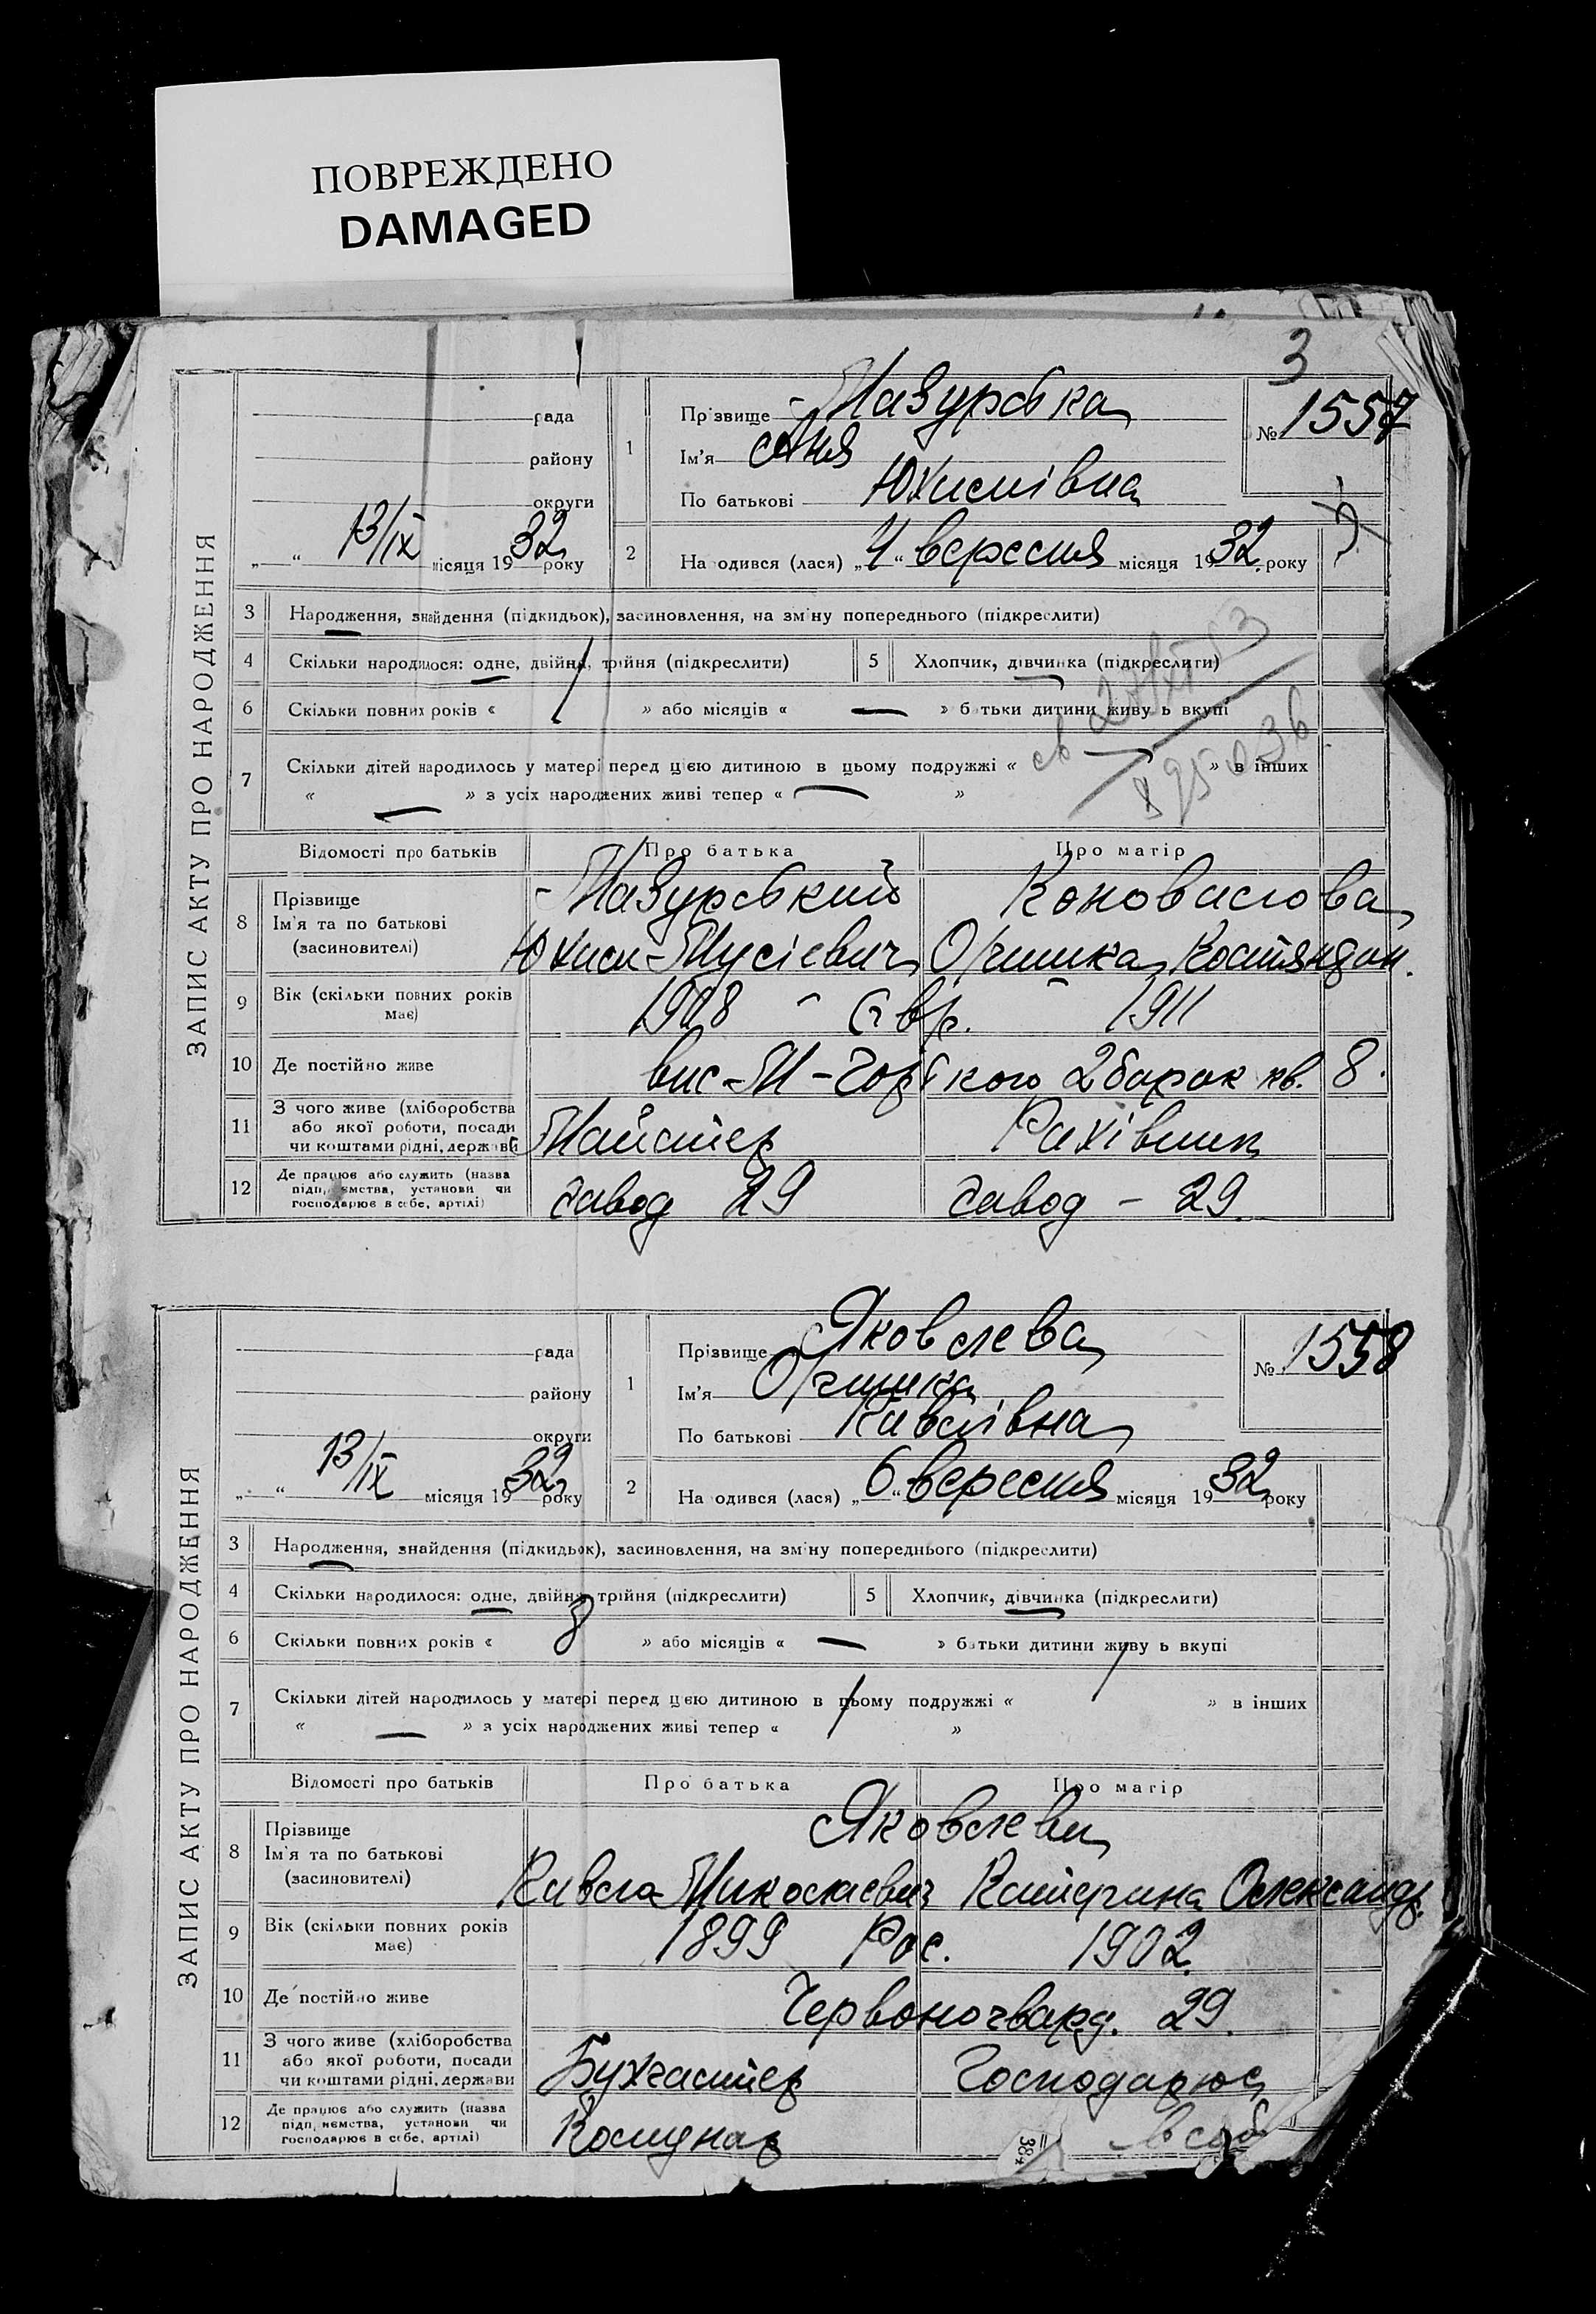 ПОВРЕЖДЕНО
DAMAGED
3
ЗАПИС АКТУ ПРО НАРОДЖЕННЯ
рада
району
округи
„ “ 13/IX місяця 1932 року
1 Прізвище Мазурська
Ім'я Аня
По батькові Юхимівна
№ 1557
2 На одився (лася) „4“ вересня місяця 1932 року
3 Народження, знайдення (підкидьок), засиновлення, на зміну попереднього (підкреслити)
4 Скільки народилося: одне, двійня, трійня (підкреслити) 5 Хлопчик, дівчинка (підкреслити)
6 Скільки повних років « / » або місяців « — » батьки дитини живуть вкупі
7 Скільки дітей народилось у матері перед цією дитиною в цьому подружжі « — » в інших
« — » з усіх народжених живі тепер « — »
Відомості про батьків Про батька Про матір
8 Прізвище Мазурський Коновалова
Ім'я та по батькові
(засиновителі) Юхим Мусієвич Костянтин.
9 Вік (скільки повних років має) 1908 - Євр. - 1911
10 Де постійно живе вис. М-Горького 2 барак кв. 8.
11 З чого живе (хліборобства або якої роботи, посади чи коштами рідні, держави Майстер Рахівник
12 Де працює або служить (назва підприємства, установи чи господарює в себе, артілі) завод 29 завод - 29.
ЗАПИС АКТУ ПРО НАРОДЖЕННЯ
рада
району
округи
„ “ 13/IX місяця 1932 року
1 Прізвище Яковлева
Ім'я
По батькові Павлівна
№ 1558
2 На одився (лася) „6“ вересня місяця 1932 року
3 Народження, знайдення (підкидьок), засиновлення, на зміну попереднього (підкреслити)
4 Скільки народилося: одне, двійня, трійня (підкреслити) 5 Хлопчик, дівчинка (підкреслити)
6 Скільки повних років « 8 » або місяців « — » батьки дитини живуть вкупі
7 Скільки дітей народилось у матері перед цією дитиною в цьому подружжі « / » в інших
« — » з усіх народжених живі тепер « / »
Відомості про батьків Про батька Про матір
8 Прізвище Яковлеви
Ім'я та по батькові
(засиновителі) Павло Миколаєвич Катерина Олександр.
9 Вік (скільки повних років має) 1899 Рос. 1902.
10 Де постійно живе Червоногвард. 29.
11 З чого живе (хліборобства або якої роботи, посади чи коштами рідні, держави Бухгалтер Господарює
12 Де працює або служить (назва підприємства, установи чи господарює в себе, артілі) Комунар в себе